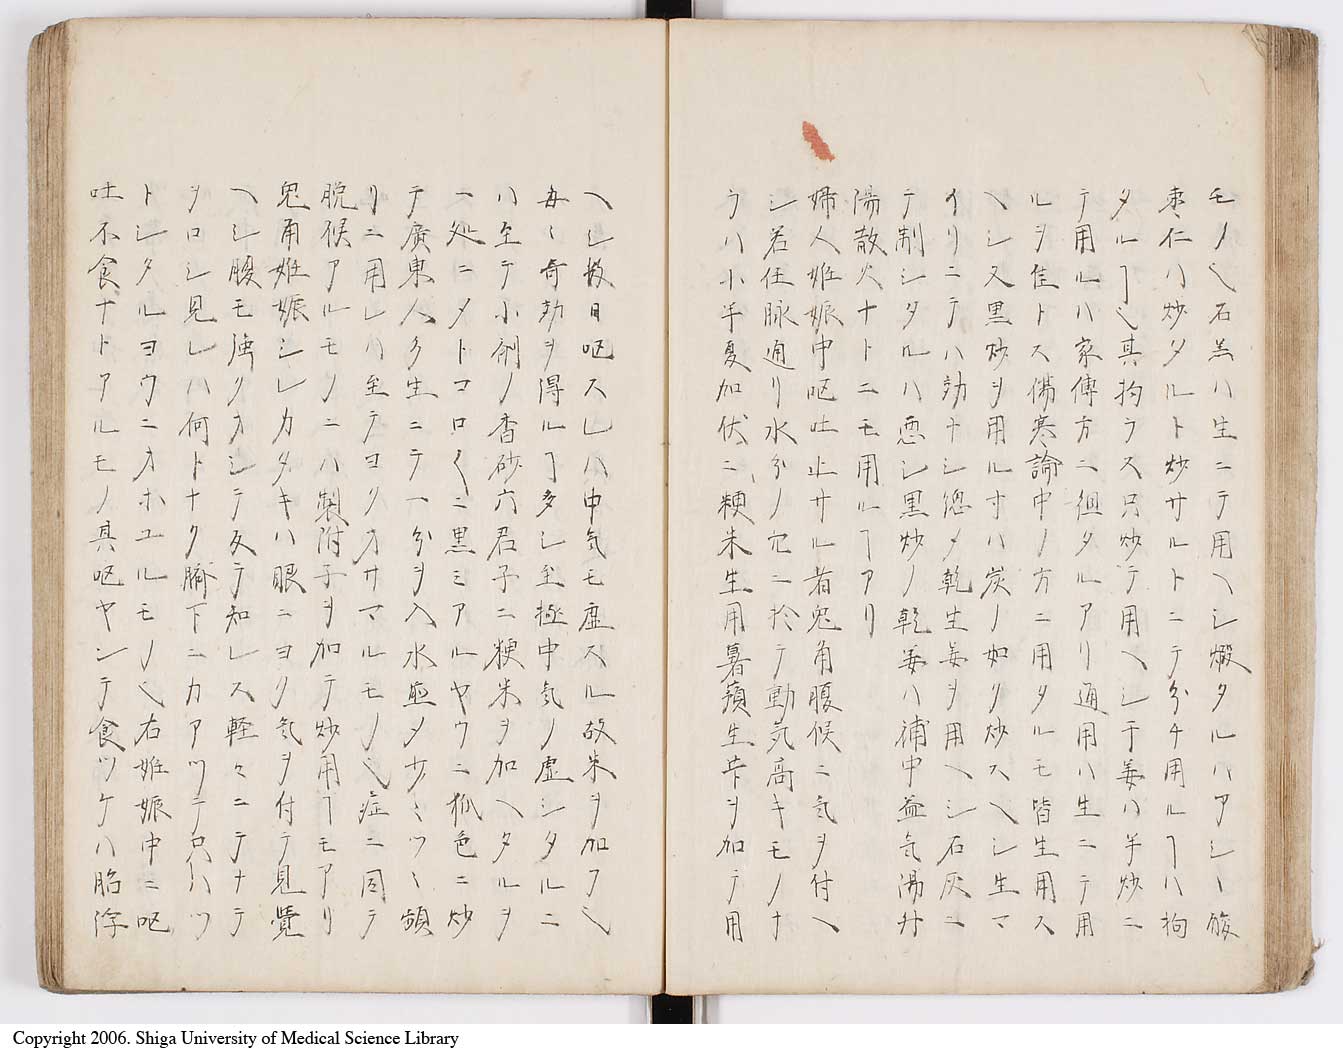 モノ也石羔ハ生ニテ用ヘシ煅タルハアシヽ酸
棗仁ハ炒タルト炒サルトニテ分チ用ルヿハ拘
タルヿ也其拘ラス只炒テ用ヘシ干姜ハ手炒ニ
テ用ルハ家傳方ニ徂タルアリ通用ハ生ニテ用
ルヲ佳トス傷寒論中ノ方ニ用タルモ皆生用ス
ヘシ又黒炒ヲ用ル寸ハ炭ノ如ク炒スヘシ生マ
イリニテハ効ナシ總メ乾生姜ヲ用ヘシ石灰ニ
テ制シタルハ悪シ黒炒ノ乾姜ハ補中益気湯升
陽散火ナトニモ用ルヿアリ
婦人姙娠中呕吐止サル者鬼角腹候ニ気ヲ付ヘ
シ若任脉通リ水分ノ穴ニ於テ動気高キモノナ
ラハ小半夏加伏ニ粳米生用暑蘋生芐ヲ加テ用
ヘシ数日呕スレハ中気モ虚スル故米ヲ加フ也
毎々奇効ヲ得ルヿ多シ至極中気ノ虚シタルニ
ハ至テ小剤ノ香砂六君子ニ粳米ヲ加ヘタルヲ
ニ処ニタトコロ〱ニ黒ミアルヤウニ狐色ニ炒
テ廣東人々生ニテ一分ヲ入水煎メ少ミツヽ頻
リニ用レハ至テヨクオサマルモノ也症ニ因テ
脱候アルモノニハ製附子ヲ加テ炒用ヿモアリ
鬼角姙娠シレカタキハ眼ニヨク気ヲ付テ見覺
ヘシ腹モ強クオシテ反テ知レス軽々ニテナテ
ヲロシ見レハ何トナク臍下ニカアツテ只ハツ
トシタルヨウニオホユルモノ也右姙娠中ニ呕
吐不食ナトアルモノ其呕ヤンテ食ツケハ胎浮
Copyright 2006. Shiga University of Medical Science Library